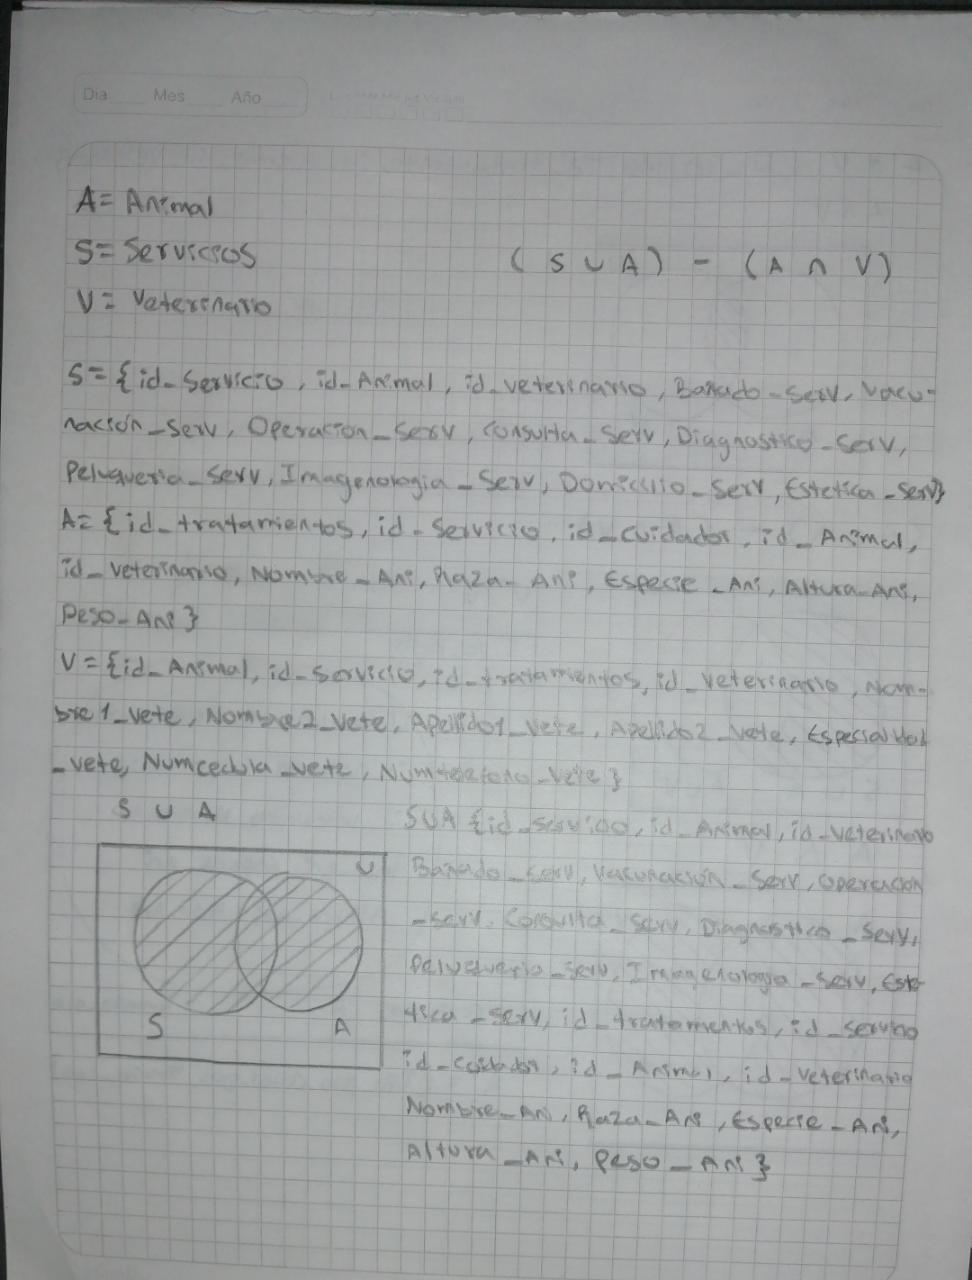 Dia Mes Año
A= Animal
S= Servicios
( S ∪ A ) - ( A ∩ V )
V= Veterinario
S={id_Servicio, id_Animal, id_veterinario, Bañado_Serv, Vacu-
nación_Serv, Operacion_Serv, Consulta_Serv, Diagnostico_Serv,
Peluqueria_Serv, Imagenologia_Serv, Domicilio_Serv, Estetica_Serv}
A= {id_tratamientos, id_Servicio, id_Cuidador, id_Animal,
id_veterinario, Nombre_Ani, Raza_Ani, Especie_Ani, Altura_Ani,
Peso_Ani}
V={id_Animal, id_Servicio, id_tratamientos, id_Veterinario, Nom-
bre1_vete, Nombre2_vete, Apellido1_vete, Apellido2_vete, Especialidad
_vete, Numcedula_vete, Numtelefono_vete}
S ∪ A
U
S A
S∪A {id_servicio, id_Animal, id_veterinario
Bañado_serv, Vacunación_Serv, Operacion
_serv, Consulta_Serv, Diagnostico_Serv,
Peluqueria_serv, Imagenologia_Serv, Este-
tica_Serv, id_tratamientos, id_servicio
id_Cuidador, id_Animal, id_veterinario
Nombre_Ani, Raza_Ani, Especie_Ani,
Altura_Ani, Peso_Ani}